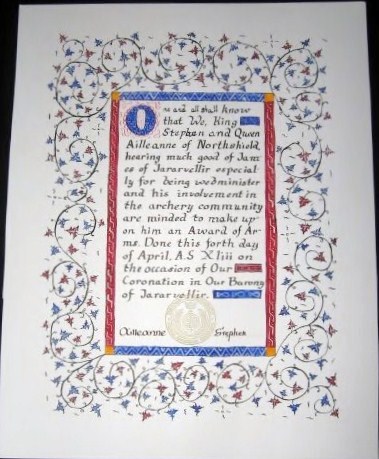 One and all shall know
that We, King
Stephen and Queen
Ailleanne of Northshield,
hearing much good of Jam
es of Jararvellir especial
ly for being webminister
and his involvement in
the archery community
are minded to make up
on him an Award of Ar
ms. Done this forth day
of April, A.S Xliii on
the occasion of Our
Coronation in Our Barony
of Jararvellir.
Ailleanne Stephen